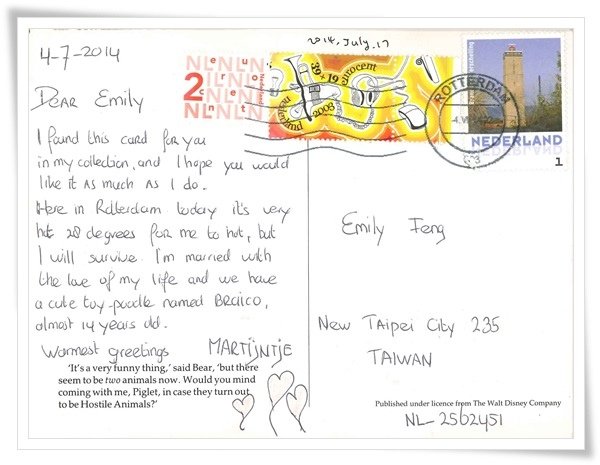 2014, July. 17
4-7-2014
2 eurocent
Nederland
39+19 eurocent
nederland 2008
ROTTERDAM
NEDERLAND
1
Dear Emily
I found this card for you
in my collection, and I hope you would
like it as much as I do.
Here in Rotterdam today it's very
hot 28 degrees for me to hot, but
I will survive. I'm married with
the love of my life and we have
a cute toy-poodle named
almost 14 years old.
Warmest greetings MARTIJNTJE
Emily Feng
New Taipei City 235
TAIWAN
'It's a very funny thing,' said Bear, 'but there
seem to be two animals now. Would you mind
coming with me, Piglet, in case they turn out
to be Hostile Animals?'
Published under licence from The Walt Disney Company
NL-2562451